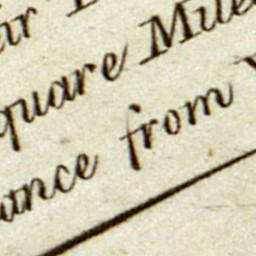 air
quare Miles
ance from